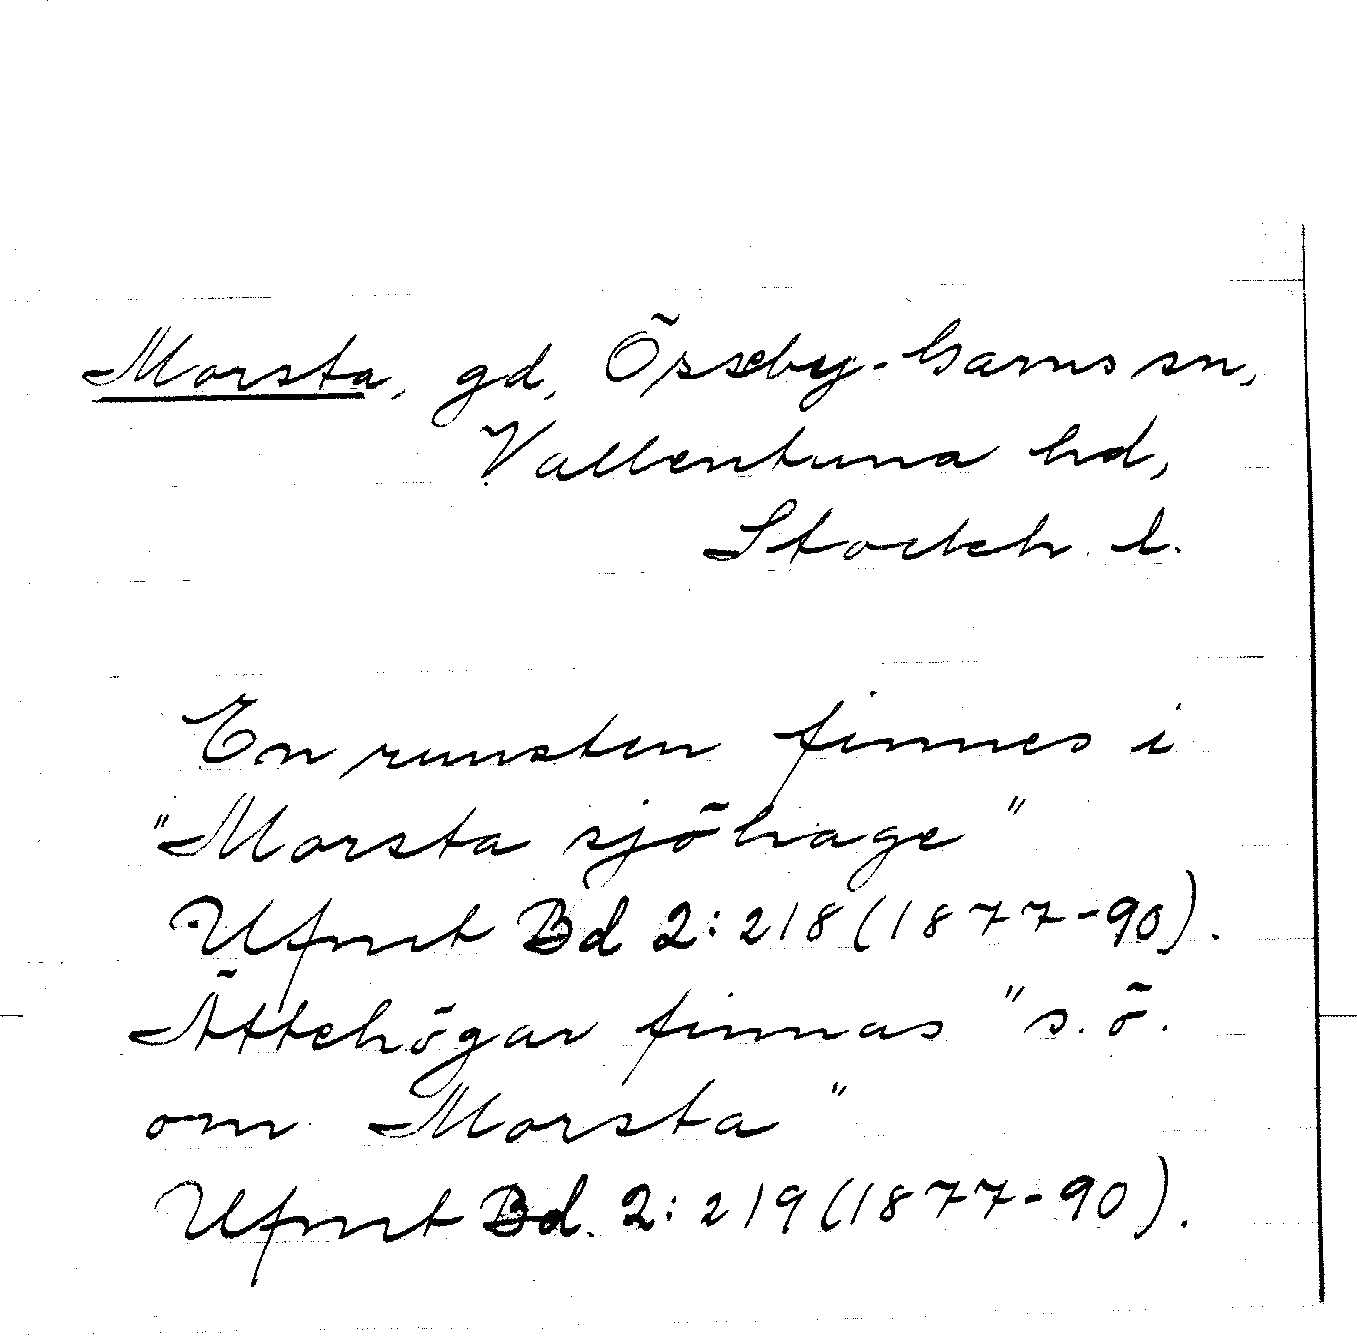 Morsta, gd, Össeby-Garns sn,
Vallentuna hd,
Stockh. l.
En runsten finnes i
"Morsta sjöhage"
Ufmt Bd 2:218 (1877-90).
Ättehögar finnas "s.ö.
om Morsta"
Ufmt Bd. 2:219 (1877-90).